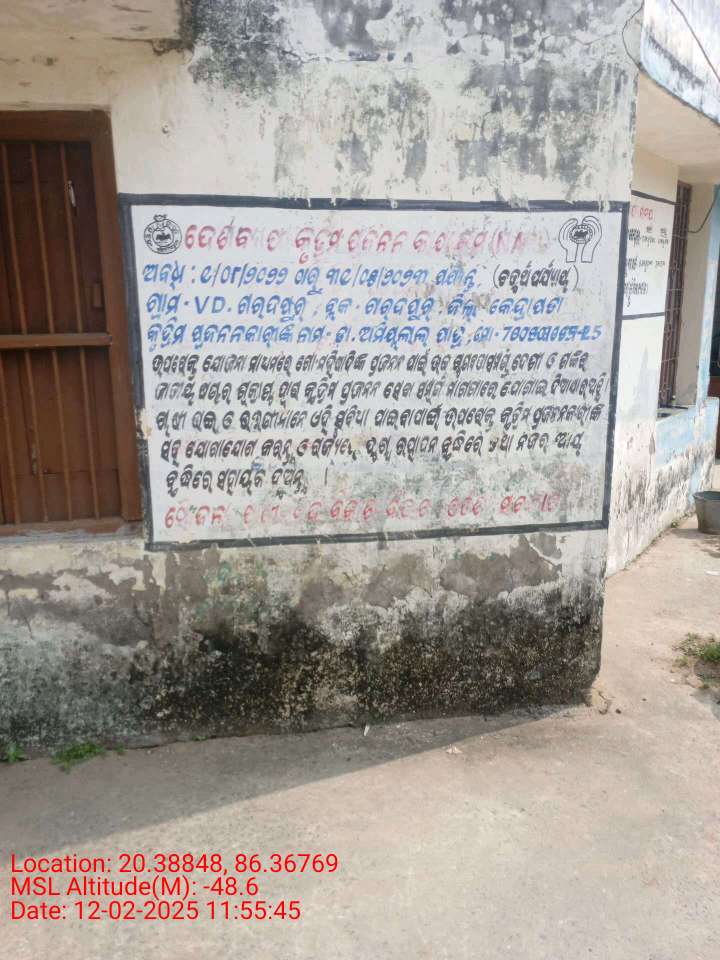 ଦେଶବ୍ୟାପୀ କୃତ୍ରିମ ପ୍ରଜନନ କାର୍ଯ୍ୟକ୍ରମ
ଅବଧି : ୧/୦୮/୨୦୨୨ ଠାରୁ ୩୧/୦୫/୨୦୨୩ ପର୍ଯ୍ୟନ୍ତ, (ଚତୁର୍ଥ ପର୍ଯ୍ୟାୟ)
ଗ୍ରାମ - VD. ଗରଦପୁର, ବ୍ଲକ - ଗରଦପୁର, ଜିଲ୍ଲା - କେନ୍ଦ୍ରାପଡା
କୃତ୍ରିମ ପ୍ରଜନନକାରୀଙ୍କ ନାମ - ଡା. ଅମିୟଲାଲ ପାତ୍ର, ମୋ -
ଉପରୋକ୍ତ ଯୋଜନା ମାଧ୍ୟମରେ ଗୋ-ମହିଷାଦିଙ୍କ ପ୍ରଜନନ ପାଇଁ ଉଚ୍ଚ ଗୁଣବତ୍ତାପୂର୍ଣ୍ଣ ଦେଶୀ ଓ ଶଙ୍କର
ଜାତୀୟ ଷଣ୍ଢର ଶୁକ୍ରାଣୁ ଦ୍ୱାରା କୃତ୍ରିମ ପ୍ରଜନନ ସେବା ସମ୍ପୂର୍ଣ୍ଣ ମାଗଣାରେ ଯୋଗାଇ ଦିଆଯାଉଅଛି
ଚାଷୀ ଭାଇ ଓ ଭଉଣୀମାନେ ଏହି ସୁବିଧା ପାଇବାପାଇଁ ଉପରୋକ୍ତ କୃତ୍ରିମ ପ୍ରଜନନକାରୀଙ୍କ
ସହ ଯୋଗାଯୋଗ କରନ୍ତୁ ଓ ରାଜ୍ୟରେ ଦୁଗ୍ଧ ଉତ୍ପାଦନ ବୃଦ୍ଧିରେ ତଥା ନିଜର ଆୟ
ବୃଦ୍ଧିରେ ସହାୟକ ହୁଅନ୍ତୁ ।
Location: 20.38848, 86.36769
MSL Altitude(M): -48.6
Date: 12-02-2025 11:55:45